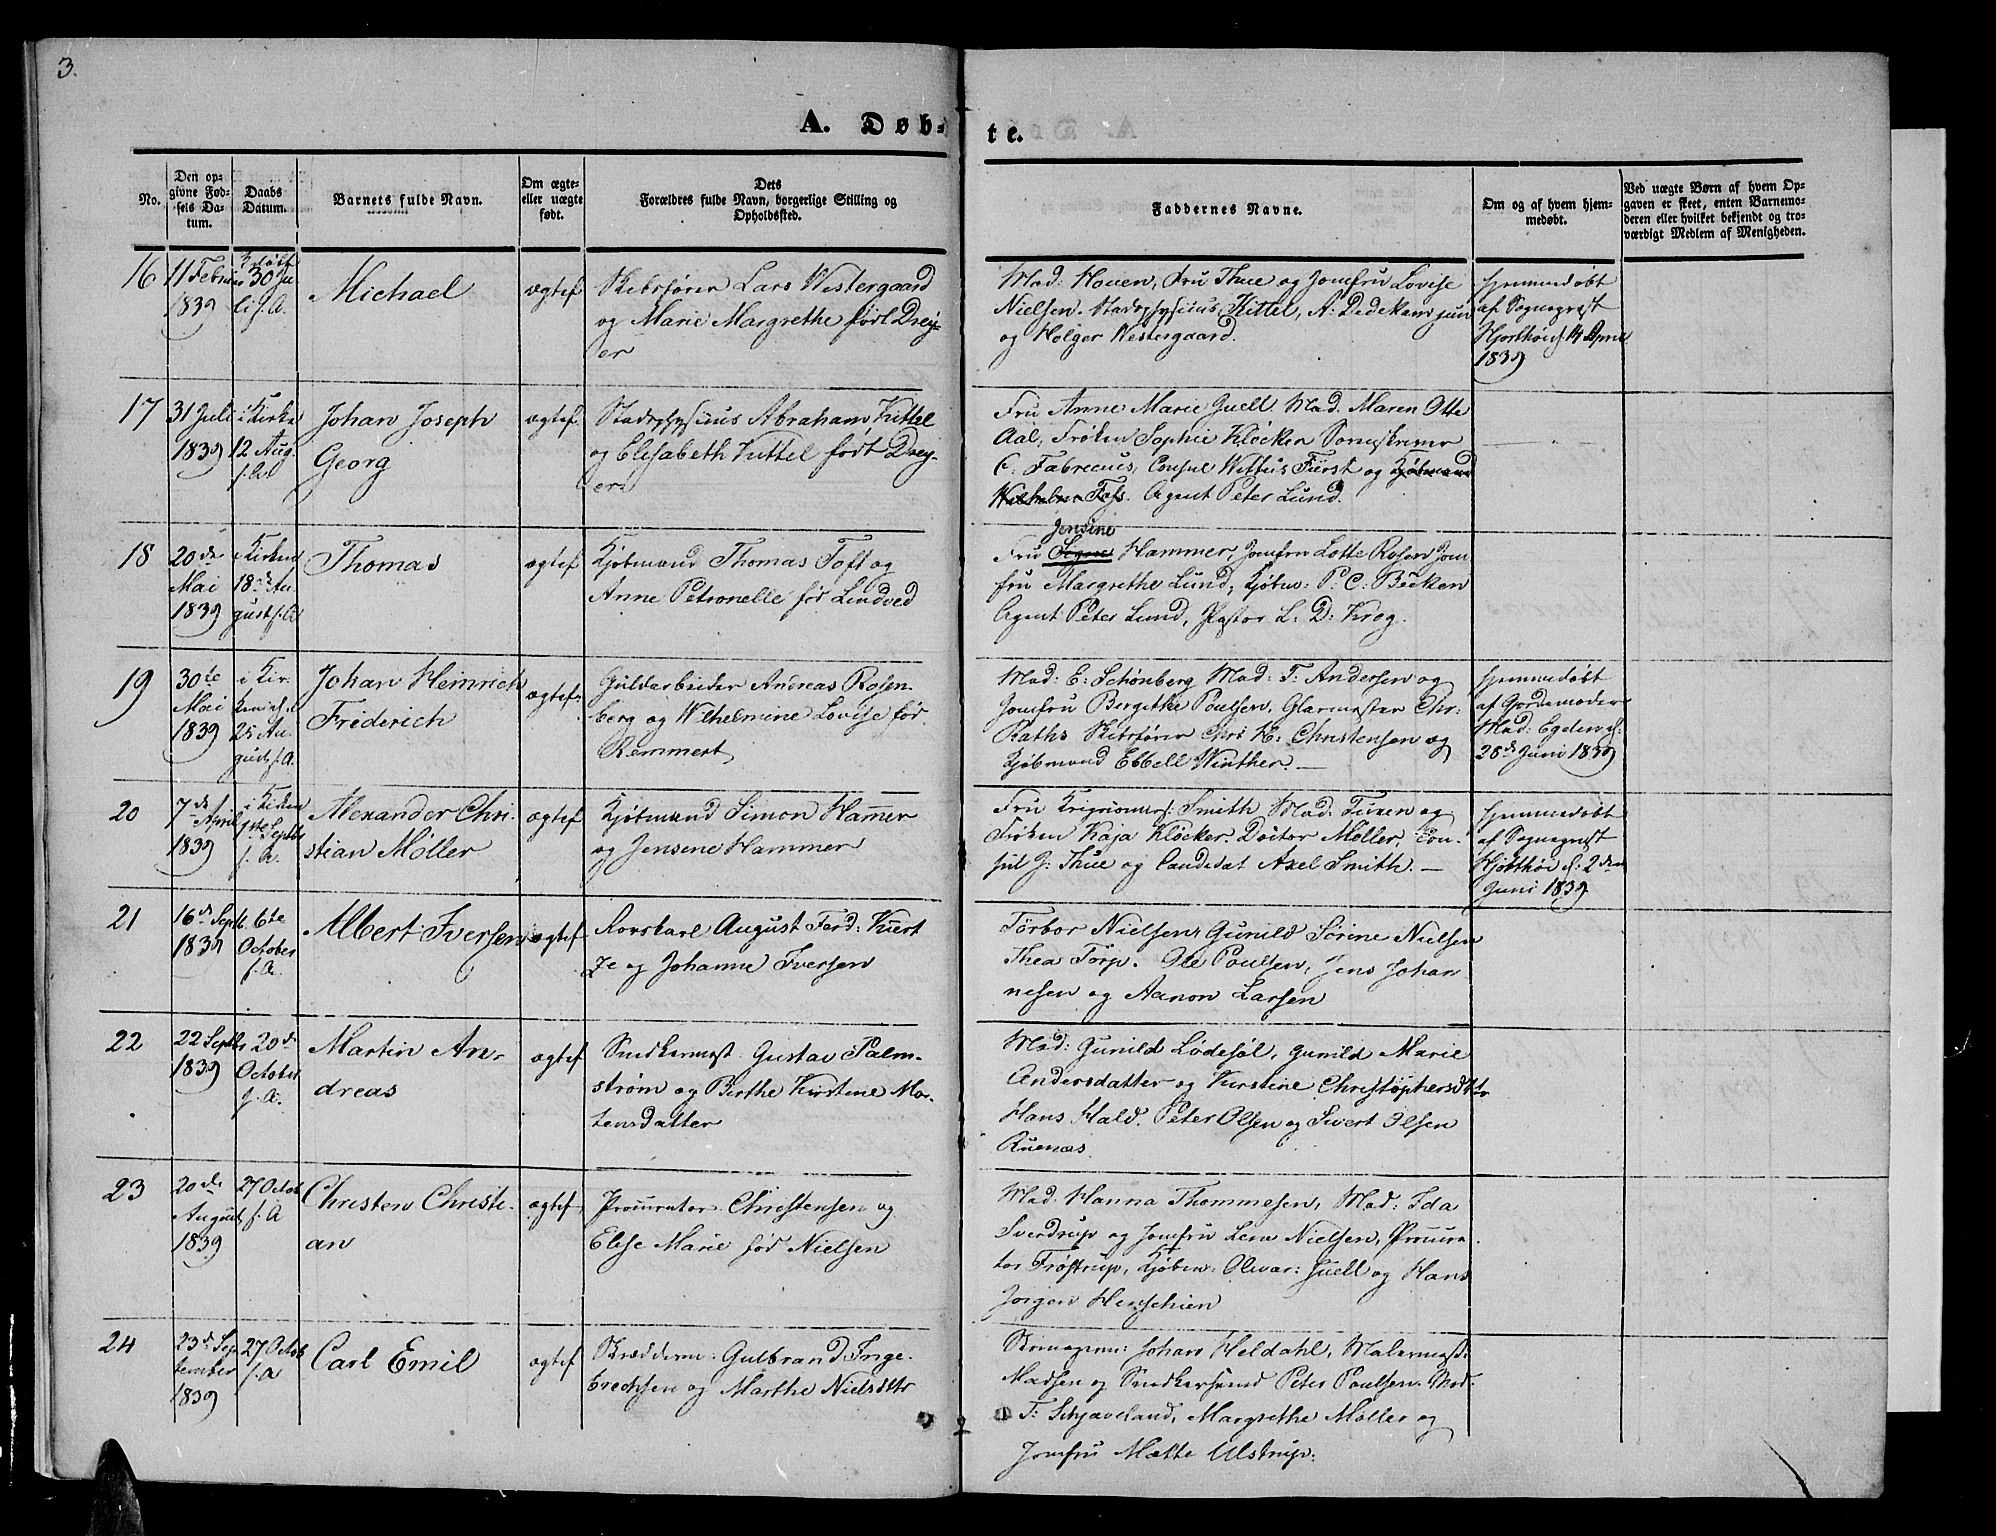 3.
A. Døb-
te.
No.
Den op-
givne Fød-
sels Da-
tum.
Daabs
Datum.
Barnets fulde Navn.
Om ægte-
eller uægte
født.
Dets
Forældres fulde Navn, borgerlige Stilling og
Opholdsted.
Faddernes Navne.
Om og af hvem hjem-
medøbt.
Ved uægte Børn af hvem Op-
gaven er skeet, enten Barnemo-
deren eller hvilket bekjendt og tro-
værdigt Medlem af Menigheden.
16
11 Februar
1839
30 Ju
li s. A.
Michael
ægtef
Skibsfører Lars Westergaard
og Marie Margrethe født Drey-
er
Mad: Houen, Fru Thue og Jomfru Lovise
Nielsen. Stadsphysicus Kittel, A: Dedekam jun
og Holger Westergaard.
Hjemmedøbt
af Sogneprest
Hjorthøi d. 14 April
1839
17
31 Juli
1839
i Kirke
12 Aug.
s. A.
Johan Joseph
Georg
ægtef
Stadsphysicus Abraham Kittel
og Elisabeth Kittel født Drey-
er
Fru Anne Marie Guell. Mad. Maren Otte
Aal, Frøken Sophie Kløcker
C. Fabrecius, Consul Wittus Fürst og Kjøbmand
Wilhelm Foss. Agent Peter Lund.
18
20de
Mai
1839
Kirken
18de Au
gust s. A
Thomas
ægtef
Kjøbmand Thomas Toft og
Anne Petronelle fød Lindved
Jensine
Fru Hammer, Jomfru Lotte Rosen Jom
fru Margrethe Lund, Kjøbm: P. C. Böcken
Agent Peter Lund, Pastor L. D: Krog.
19
30te
Mai
1839
i Kir-
ken d.
25 Au
gust s. A.
Johan Heinrich
Friderich
ægtef
Guldarbeider Andreas Rosen-
berg og Wilhelmine Lovise fød
Remmert
Mad: E: Schønberg Mad: T: Andersen og
Jomfru Birgethe Poulsen, Glarmester Chr:
Raths Skibsfører Chr: H: Christensen og
Kjøbmand Ebbell Winther. —
Hjemmedøbt
af Gjordemoder
Mad: Egelien d:
28de Juni 1839
20
7de April
1839
i Kirken
Septbr
s. A.
Alexander Chri-
stian Møller
ægtef
Kjøbmand Simon Hammer
og Jensene Hammer
Fru Smith Mad. Tuxen og
Frøken Kaja Kløcker. Doctor Møller, Con-
sul J: Thue og Candidat Axel Smith. —
Hjemmedøbt
af Sogneprest
Hjorthøi d: 2den
Juni 1839
21
16de Septb.
1839
6te
October
s. A.
Albert Iversen
ægtef
Rorskarl August Ferd: Kuert
ze og Johanne Iversen
Törbor Nielsen, Gunild Sörine Nielsen
Thea Törp. Ole Poulsen, Jens Johan
nesen og Aanon Larsen
22
22 Septbr
1839
20de
October
s. A.
Martin An-
dreas
ægtef
Snedkermest. Gustav Palm-
strøm og Birthe Kirstine Mor-
tensdatter
Mad: Gunild Lødesøl, Gunild Marie
Andersdatter og Kirstine Christophersdttr
Hans Hald. Peter Olsen og Sivert Olsen
Ruenæs
23
20de
August
1839
27 Octob
s. A
Christen Christi-
an
ægtef
Procurator Christensen og
Elise Marie fød Nielsen
Mad. Hanna Thommesen, Mad: Ida
Sverdrup og Jomfru Lene Nielsen, Procura
tor Frøstrup, Kjøbm: Olivar: Guell og Hans
Jørgen Henschien
24
23de Sep
tember
1839
27 Octob
s. A
Carl Emil
ægtef
Skrædderm: Gulbrand Inge-
brechtsen og Marthe Nielsdttr
Skomagerm: Johan Heldahl, Malermest:
Madsen og Snedkersvend Peter Poulsen. Mad.
T: Schjaveland, Margrethe Møller og
Jomfru Mætte Ulstrup.